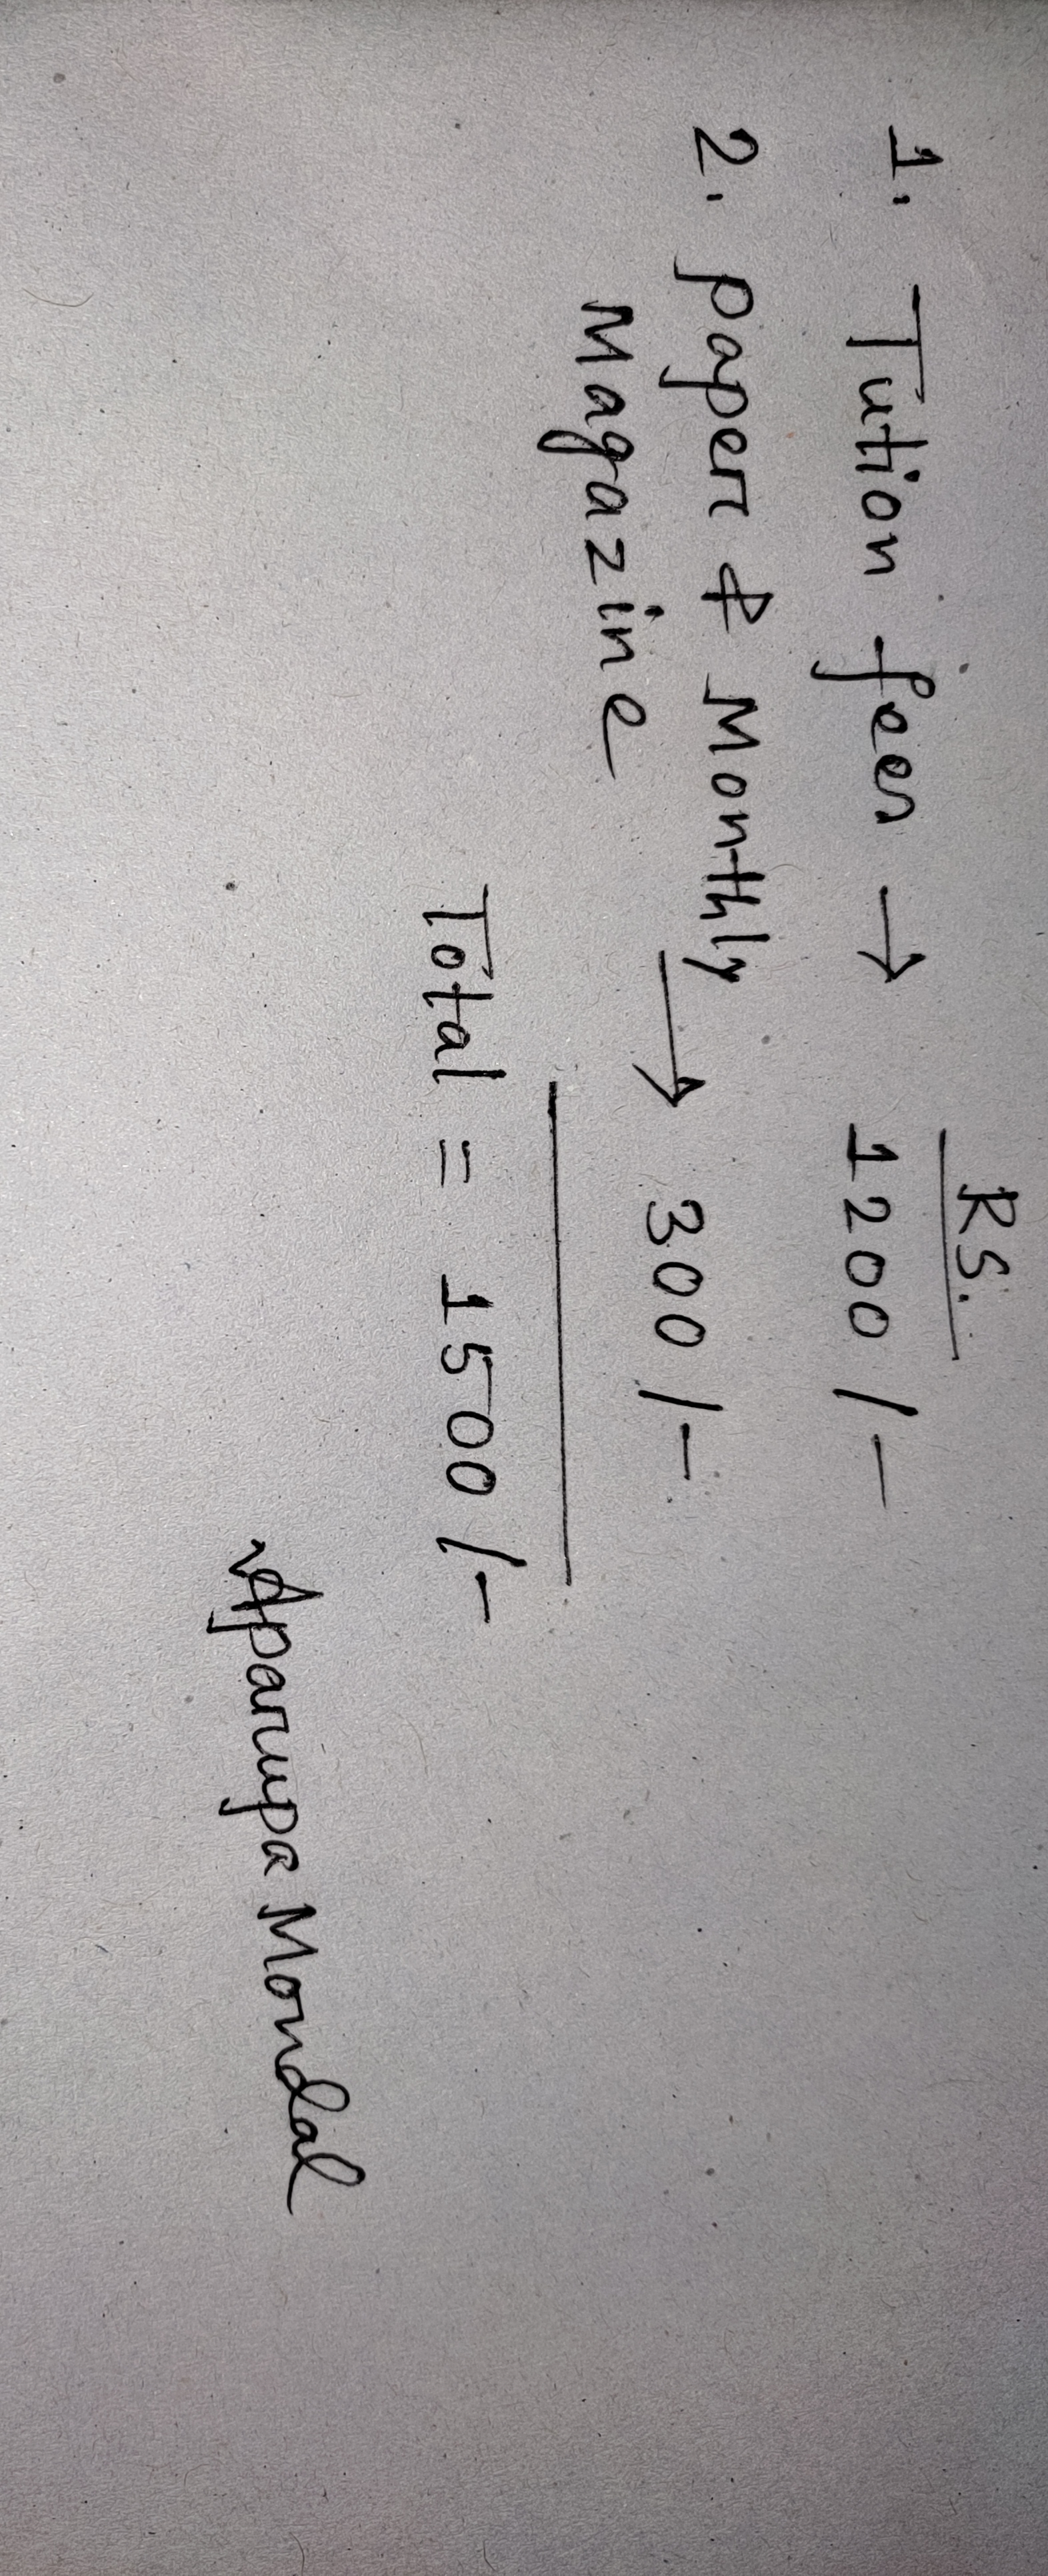 RS.
1. Tution fees → 1200/-
2. paper & Monthly
Magazine → 300/-
Total = 1500/-
Aparupa Mondal